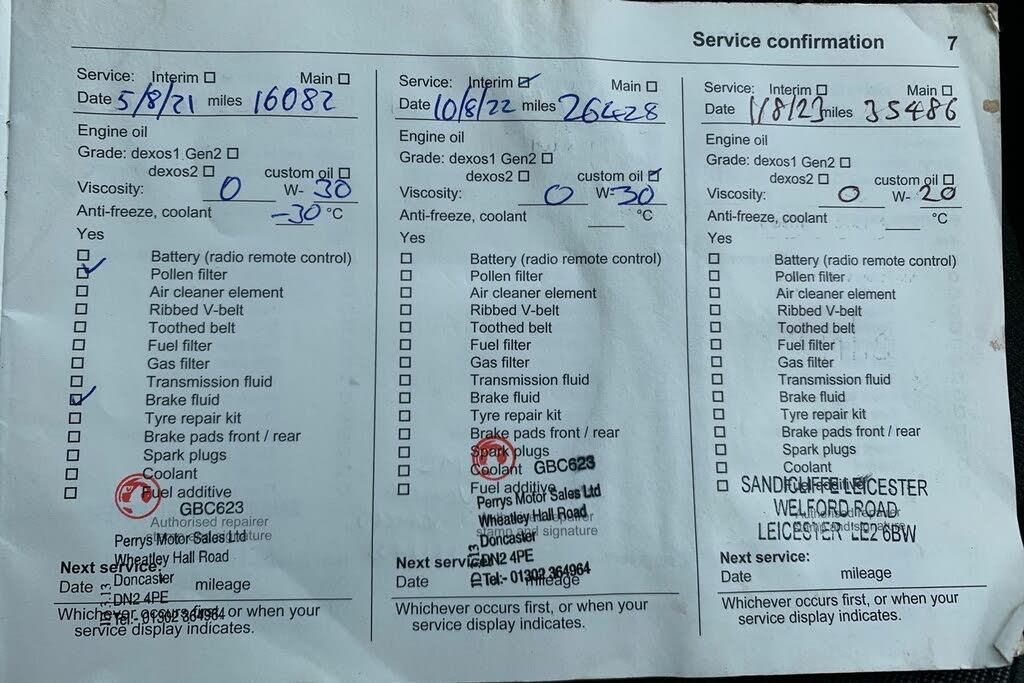 Service confirmation 7
Service: Interim Main
Date 5/8/21 miles 16082
Engine oil
Grade: dexos1 Gen2
dexos2 custom oil
Viscosity: 0 W- 30
Anti-freeze, coolant -30 °C
Yes
Battery (radio remote control)
Pollen filter
Air cleaner element
Ribbed V-belt
Toothed belt
Fuel filter
Gas filter
Transmission fluid
Brake fluid
Tyre repair kit
Brake pads front / rear
Spark plugs
Coolant
Fuel additive
GBC623
Authorised repairer
stamp and signature
Perrys Motor Sales Ltd
Wheatley Hall Road
Doncaster
DN2 4PE
Tel:- 01302 364964
Next service:
Date mileage
Whichever occurs first, or when your
service display indicates.
Service: Interim Main
Date 10/8/22 miles 26428
Engine oil
Grade: dexos1 Gen2
dexos2 custom oil
Viscosity: 0 W- 30
Anti-freeze, coolant °C
Yes
Battery (radio remote control)
Pollen filter
Air cleaner element
Ribbed V-belt
Toothed belt
Fuel filter
Gas filter
Transmission fluid
Brake fluid
Tyre repair kit
Brake pads front / rear
Spark plugs
Coolant GBC623
Fuel additive
Perrys Motor Sales Ltd
Wheatley Hall Road
stamp and signature
Doncaster
DN2 4PE
Tel:- 01302 364964
Next service:
Date mileage
Whichever occurs first, or when your
service display indicates.
Service: Interim Main
Date 1/8/23 miles 35486
Engine oil
Grade: dexos1 Gen2
dexos2 custom oil
Viscosity: 0 W- 20
Anti-freeze, coolant °C
Yes
Battery (radio remote control)
Pollen filter
Air cleaner element
Ribbed V-belt
Toothed belt
Fuel filter
Gas filter
Transmission fluid
Brake fluid
Tyre repair kit
Brake pads front / rear
Spark plugs
Coolant
Fuel additive
SANDICLIFFE LEICESTER
WELFORD ROAD
Authorised repairer
stamp and signature
LEICESTER LE2 6BW
Next service:
Date mileage
Whichever occurs first, or when your
service display indicates.